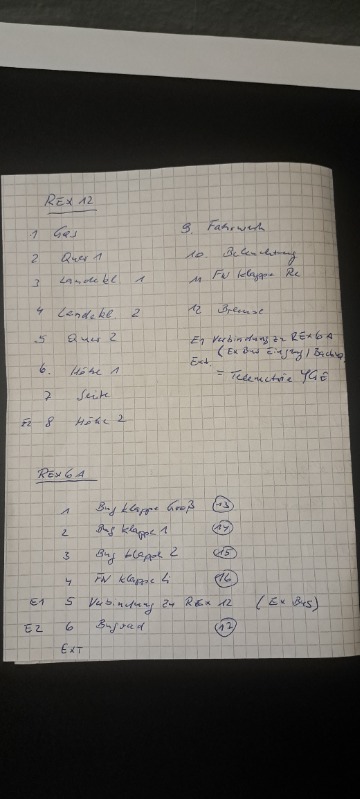 REX 12
1 Gas
2 Quer 1
3 Landekl 1
4 Landekl 2
5 Quer 2
6. Höhe 1
7 Seite
E2 8 Höhe 2
9. Fahrwerk
10. Beleuchtung
11 FW Klappe Re
12 Bremse
E1 Verbindung zu REX 6 A
(Ex Bus Eingang /
Ext = Telemetrie YGE
REX 6 A
1 Bug Klappe Groß 13
2 Bug Klappe 1
3 Bug Klappe 2 15
4 FW Klappe Li 16
E1 5 Verbindung zu REX 12 (Ex Bus)
E2 6 Bugrad
EXT